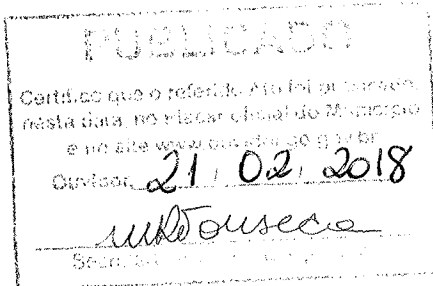 PUBLICADO
Certifico que o referido Ato foi publicado,
nesta data, no placar oficial do Município
e no site www.ouvidor.go.gov.br
Ouvidor, 21, 02, 2018